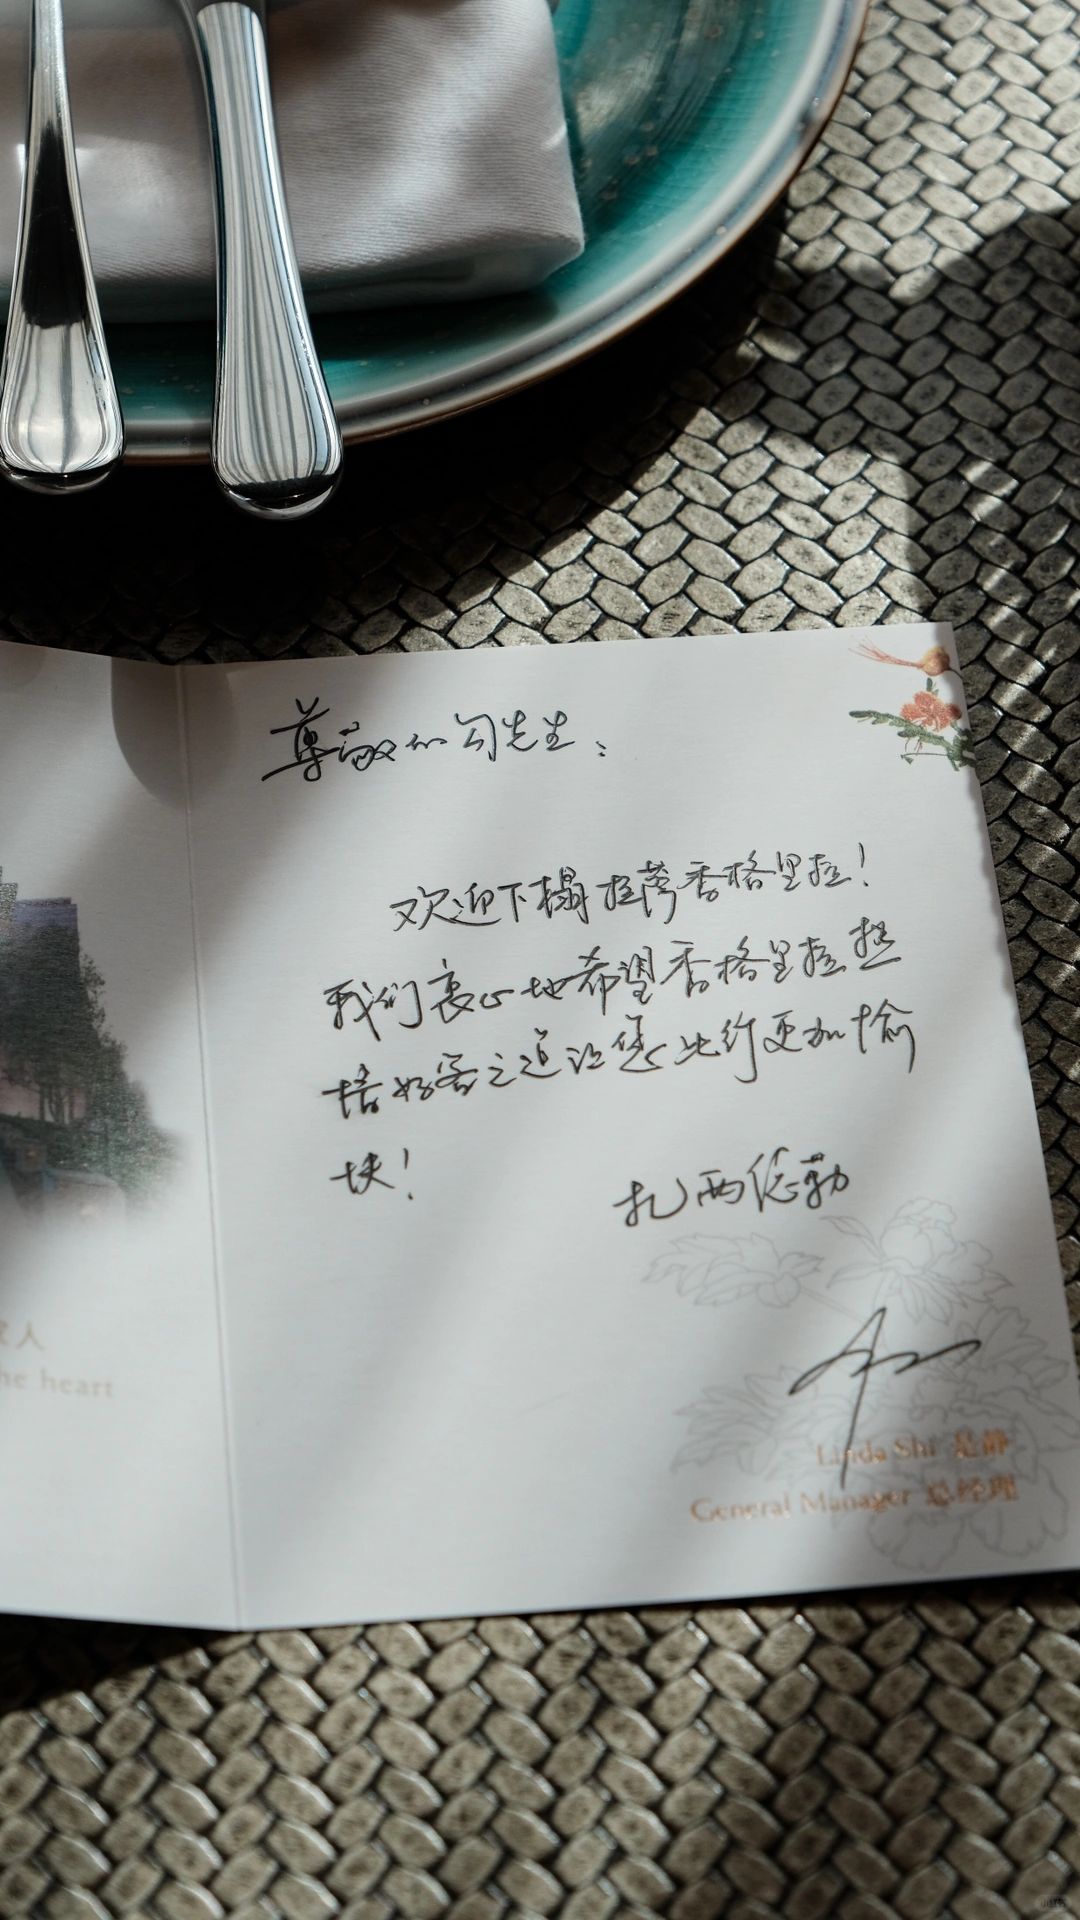 尊敬的勾先生：
欢迎下榻拉萨香格里拉！
我们衷心地希望香格里拉热
情好客之道让您此行更加愉
快！
扎西德勒
家人
he heart
Linda Shi 是静
General Manager 总经理